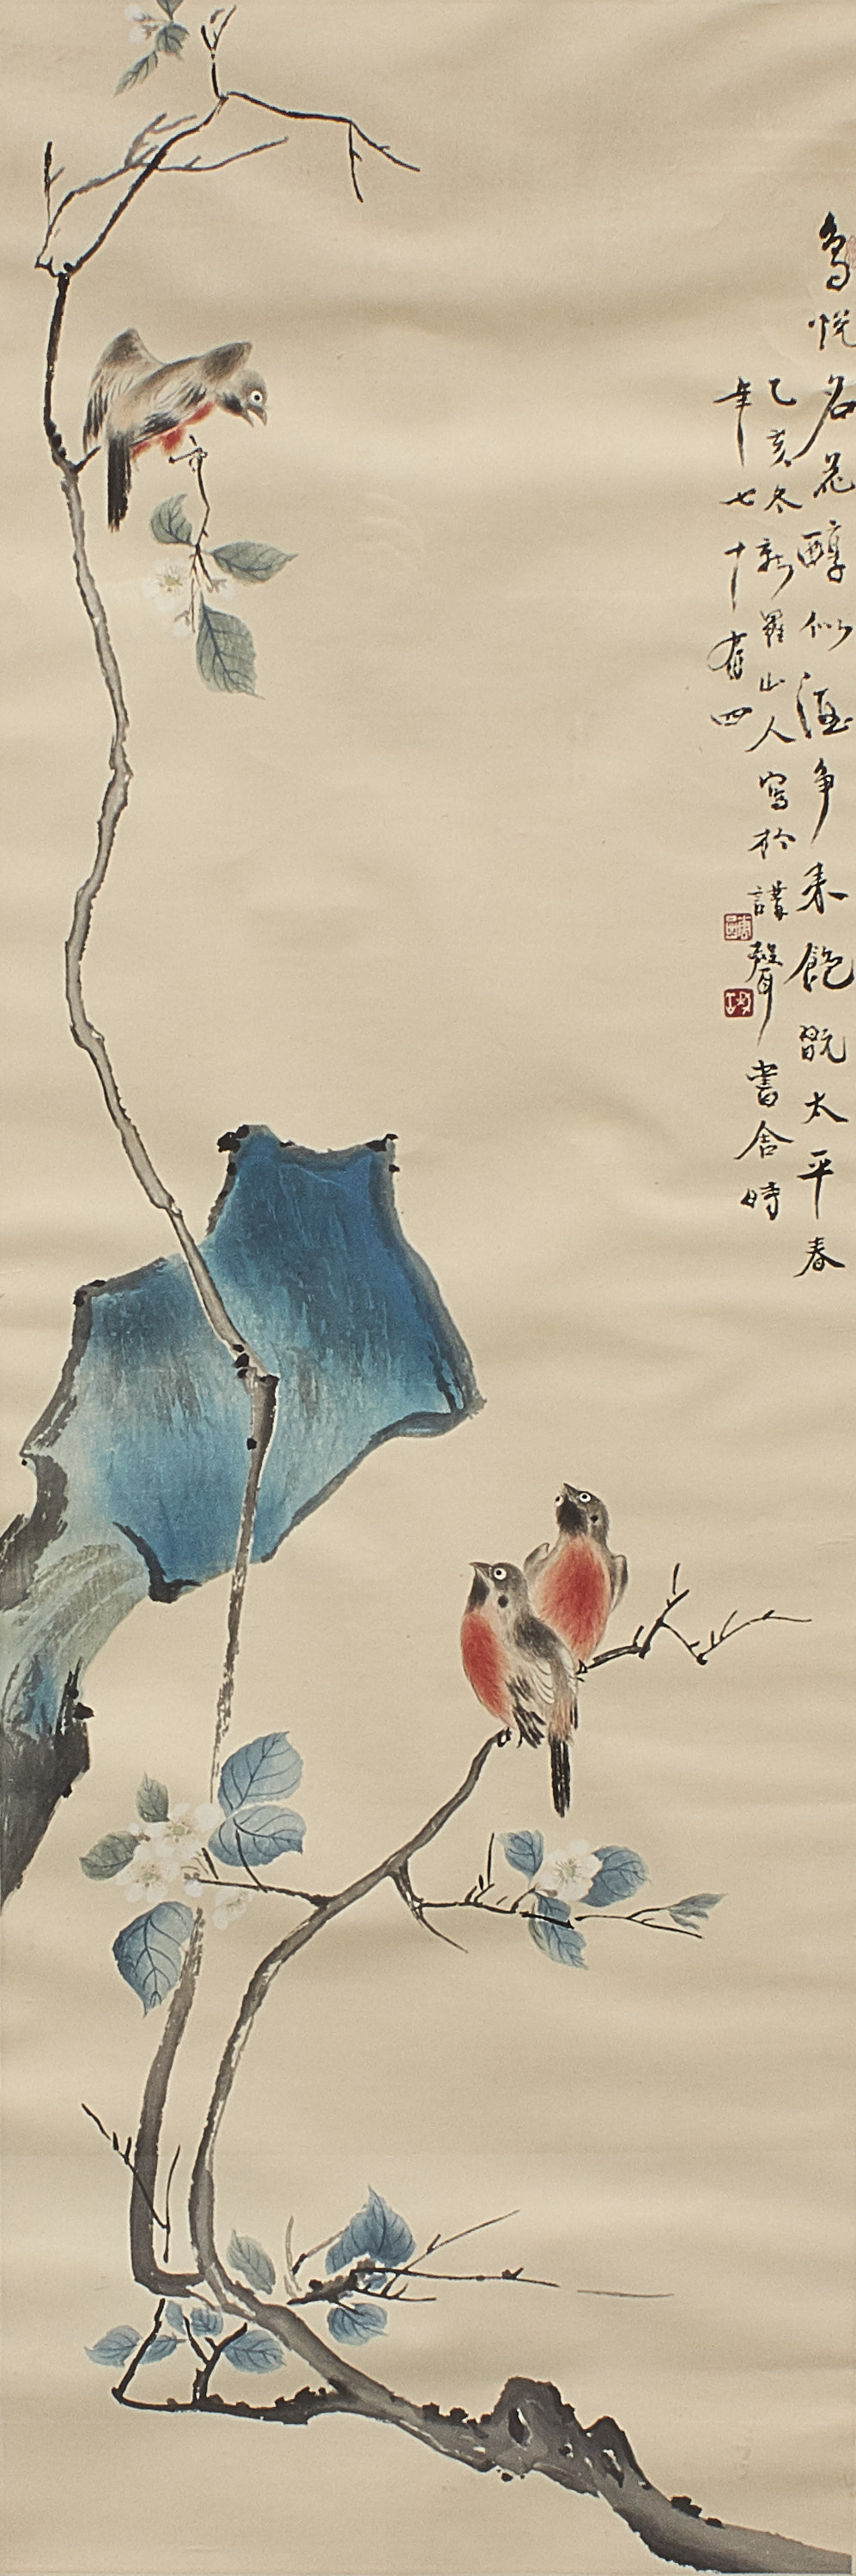 鳥悅名花醇似酒爭来飽翫太平春
乙亥冬新羅山人寫於講聲書舍時
年七十有四